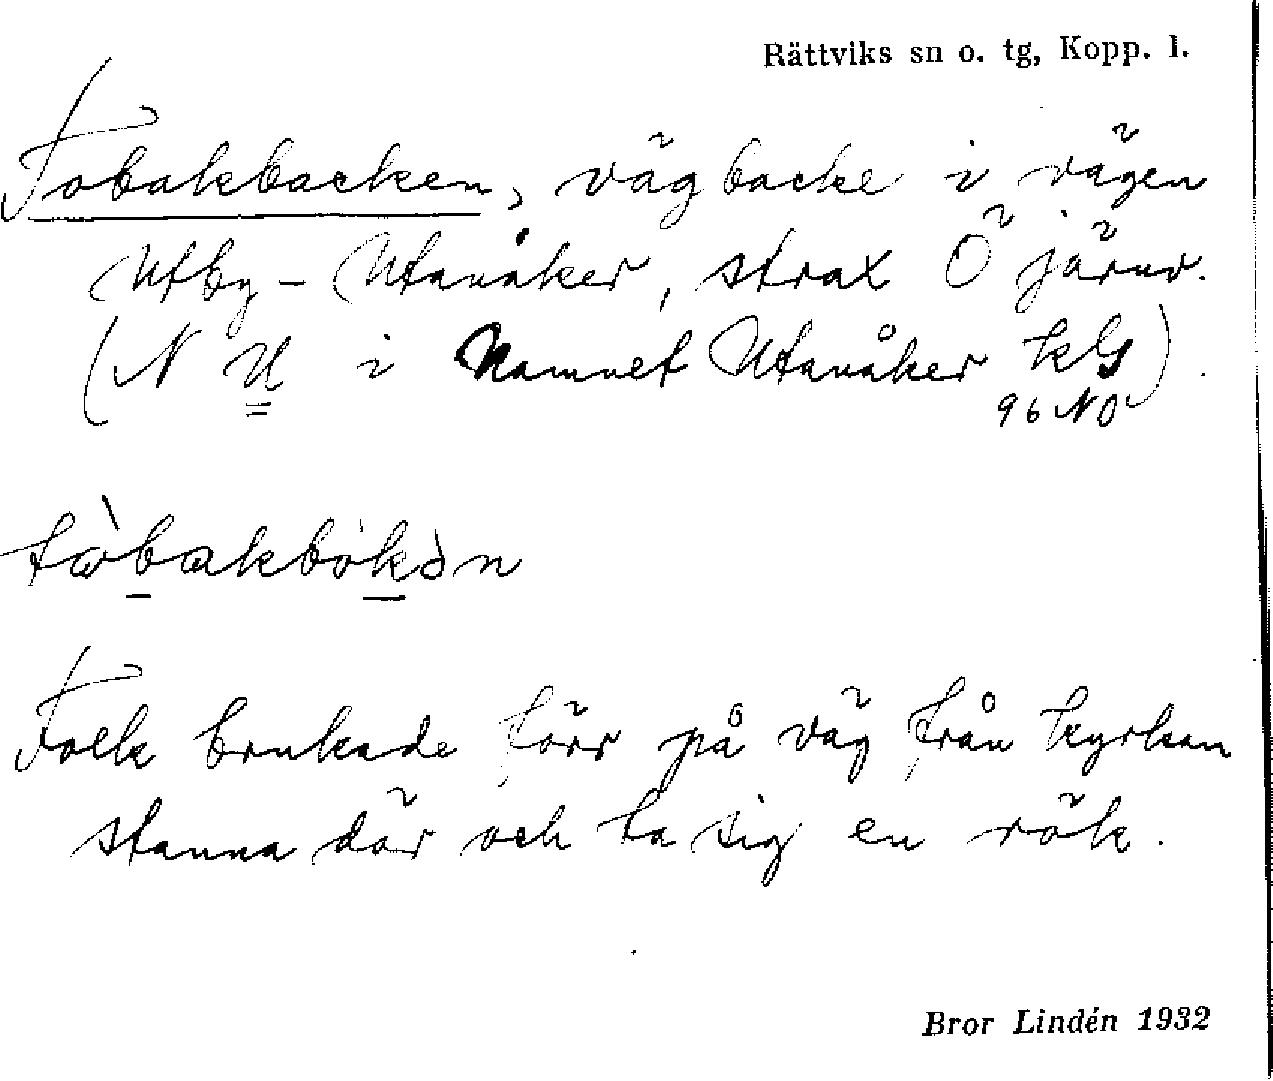 Rättviks sn o. tg, Kopp. l.
Tobakbacken, vägbacke i vägen
Utby - Utanåker, strax Ö järnv.
(N U i Namnet Utanåker kG)
96 NO
Folk brukade förr på väg från kyrkan
stanna där och ta sig en rök.
Bror Lindén 1932